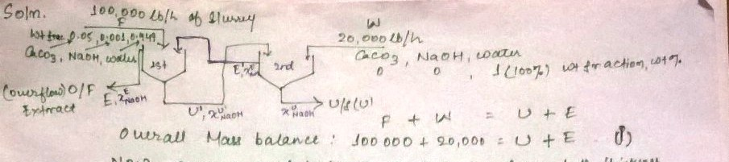 Soln. 100,000 lb/h of slurry
F
wt frac 0.05, 0.001, 0.949
CaCO3, NaOH, water
W
20,000 lb/h
CaCO3, NaOH, water
0 0 , 1 (100%) wt fraction, wt%
1st
E, x
2nd
(overflow) O/F
Extract
E, xNaOH
U', xU'NaOH
xUNaOH
U/F (U)
F + W = U + E
Overall Mass balance : 100 000 + 20,000 = U + E (1)